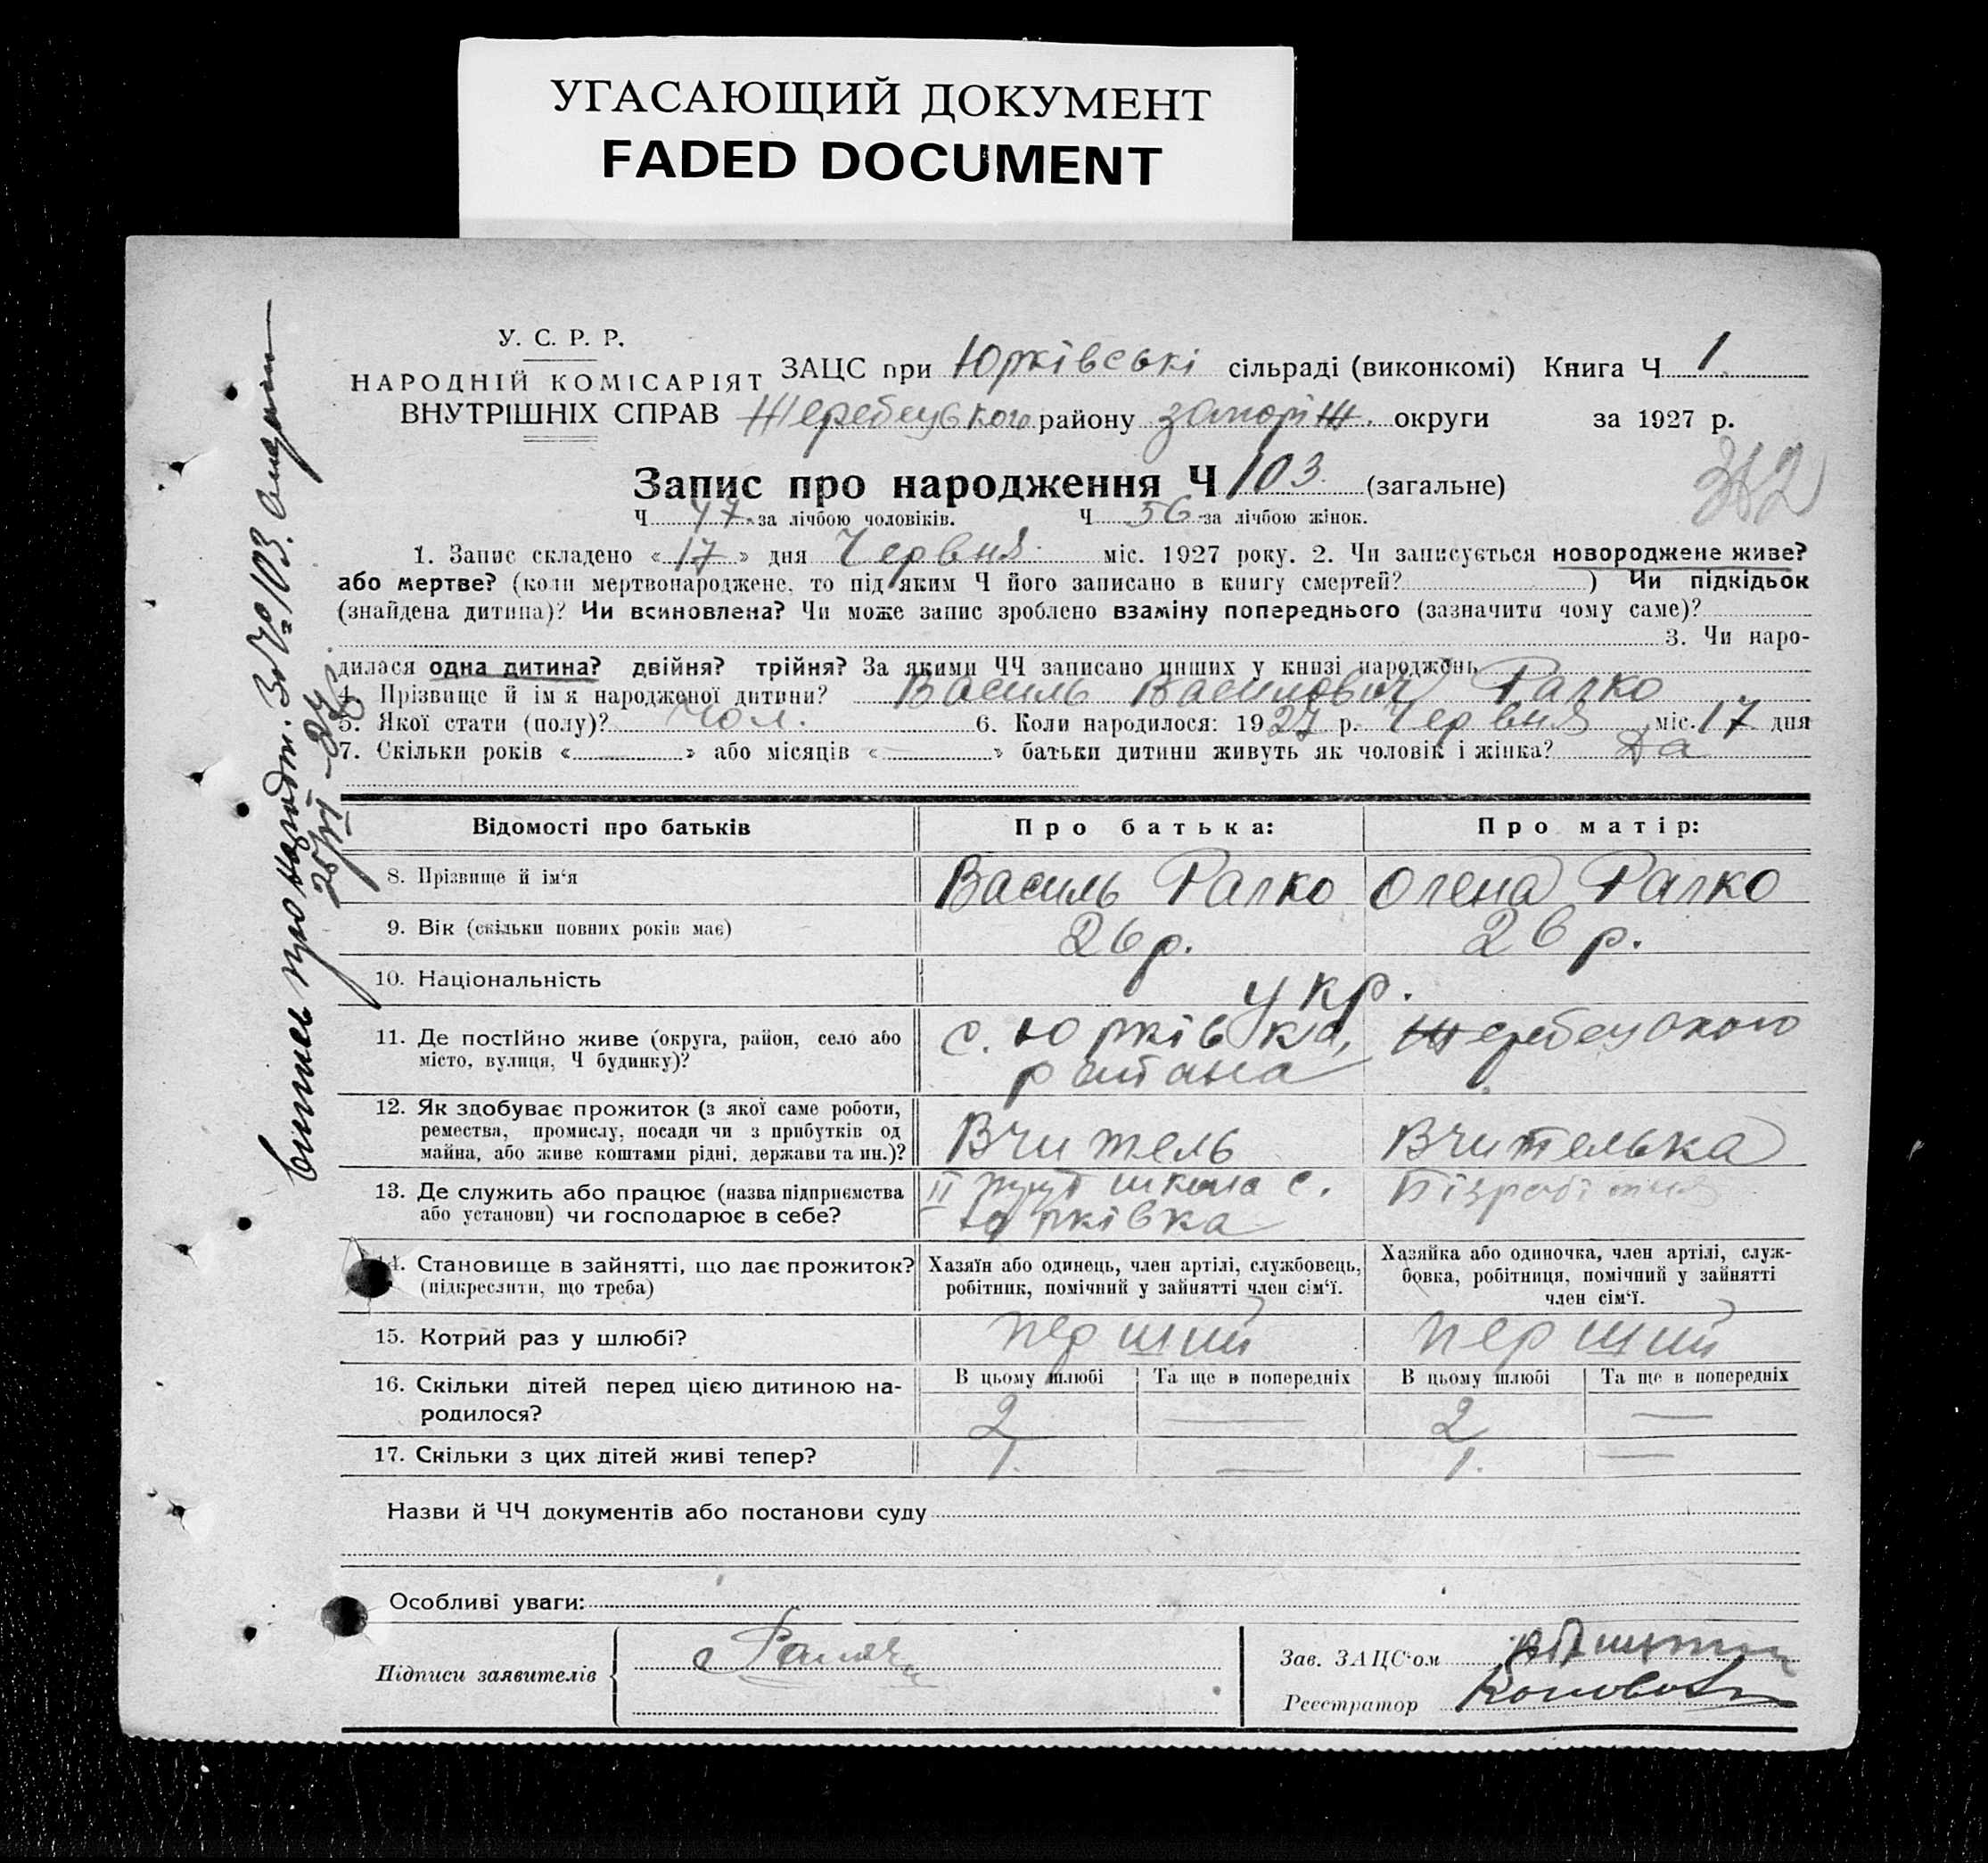 УГАСАЮЩИЙ ДОКУМЕНТ
FADED DOCUMENT
У. С. Р. Р.
НАРОДНІЙ КОМІСАРІЯТ
ВНУТРІШНІХ СПРАВ
ЗАЦС при Юрківські сільраді (виконкомі) Книга Ч 1.
Жеребецького району запоріж. округи за 1927 р.
Запис про народження Ч 103. (загальне)
Ч 47 за лічбою чоловіків. Ч 56 за лічбою жінок.
1. Запис складено « 17 » дня Червня міс. 1927 року. 2. Чи записується новороджене живе?
або мертве? (коли мертвонароджене, то під яким Ч його записано в книгу смертей? ) Чи підкідьок
(знайдена дитина)? Чи всиновлена? Чи може запис зроблено взаміну попереднього (зазначити чому саме)?
3. Чи наро-
дилася одна дитина? двійня? трійня? За якими ЧЧ записано инших у книзі народжень
4. Прізвище й ім'я народженої дитини? Василь Васильович Ралко
5. Якої стати (полу)? чол. 6. Коли народилося: 1927 р. Червня міс. 17 дня
7. Скільки років « — » або місяців « — » батьки дитини живуть як чоловік і жінка? Да
Відомості про батьків Про батька: Про матір:
8. Прізвище й ім'я Василь Ралко Олена Ралко
9. Вік (скільки повних років має) 26 р. 26 р.
10. Національність укр.
11. Де постійно живе (округа, район, село або
місто, вулиця, Ч будинку)?
с. Юрківка, Жеребецького
району
12. Як здобуває прожиток (з якої саме роботи,
ремества, промислу, посади чи з прибутків од
майна, або живе коштами рідні, держави та ин.)?
Вчитель Вчителька
13. Де служить або працює (назва підприємства
або установи) чи господарює в себе?
школа с.
Юрківка
14. Становище в зайнятті, що дає прожиток?
(підкреслити, що треба)
Хазяїн або одинець, член артілі, службовець,
робітник, помічний у зайнятті член сім'ї.
Хазяйка або одиночка, член артілі, служ-
бовка, робітниця, помічний у зайнятті
член сім'ї.
15. Котрий раз у шлюбі? перший перший
16. Скільки дітей перед цією дитиною на-
родилося?
В цьому шлюбі Та ще в попередніх В цьому шлюбі Та ще в попередніх
2 — 2 —
17. Скільки з цих дітей живі тепер? 1. — 1. —
Назви й ЧЧ документів або постанови суду
Особливі уваги:
Підписи заявителів
Зав. ЗАЦС'ом
Реєстратор